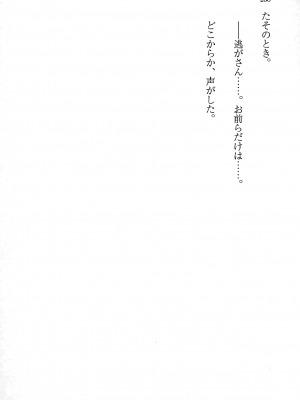 たそのとき。
――逃がさん……。お前らだけは……。
どこからか、声がした。